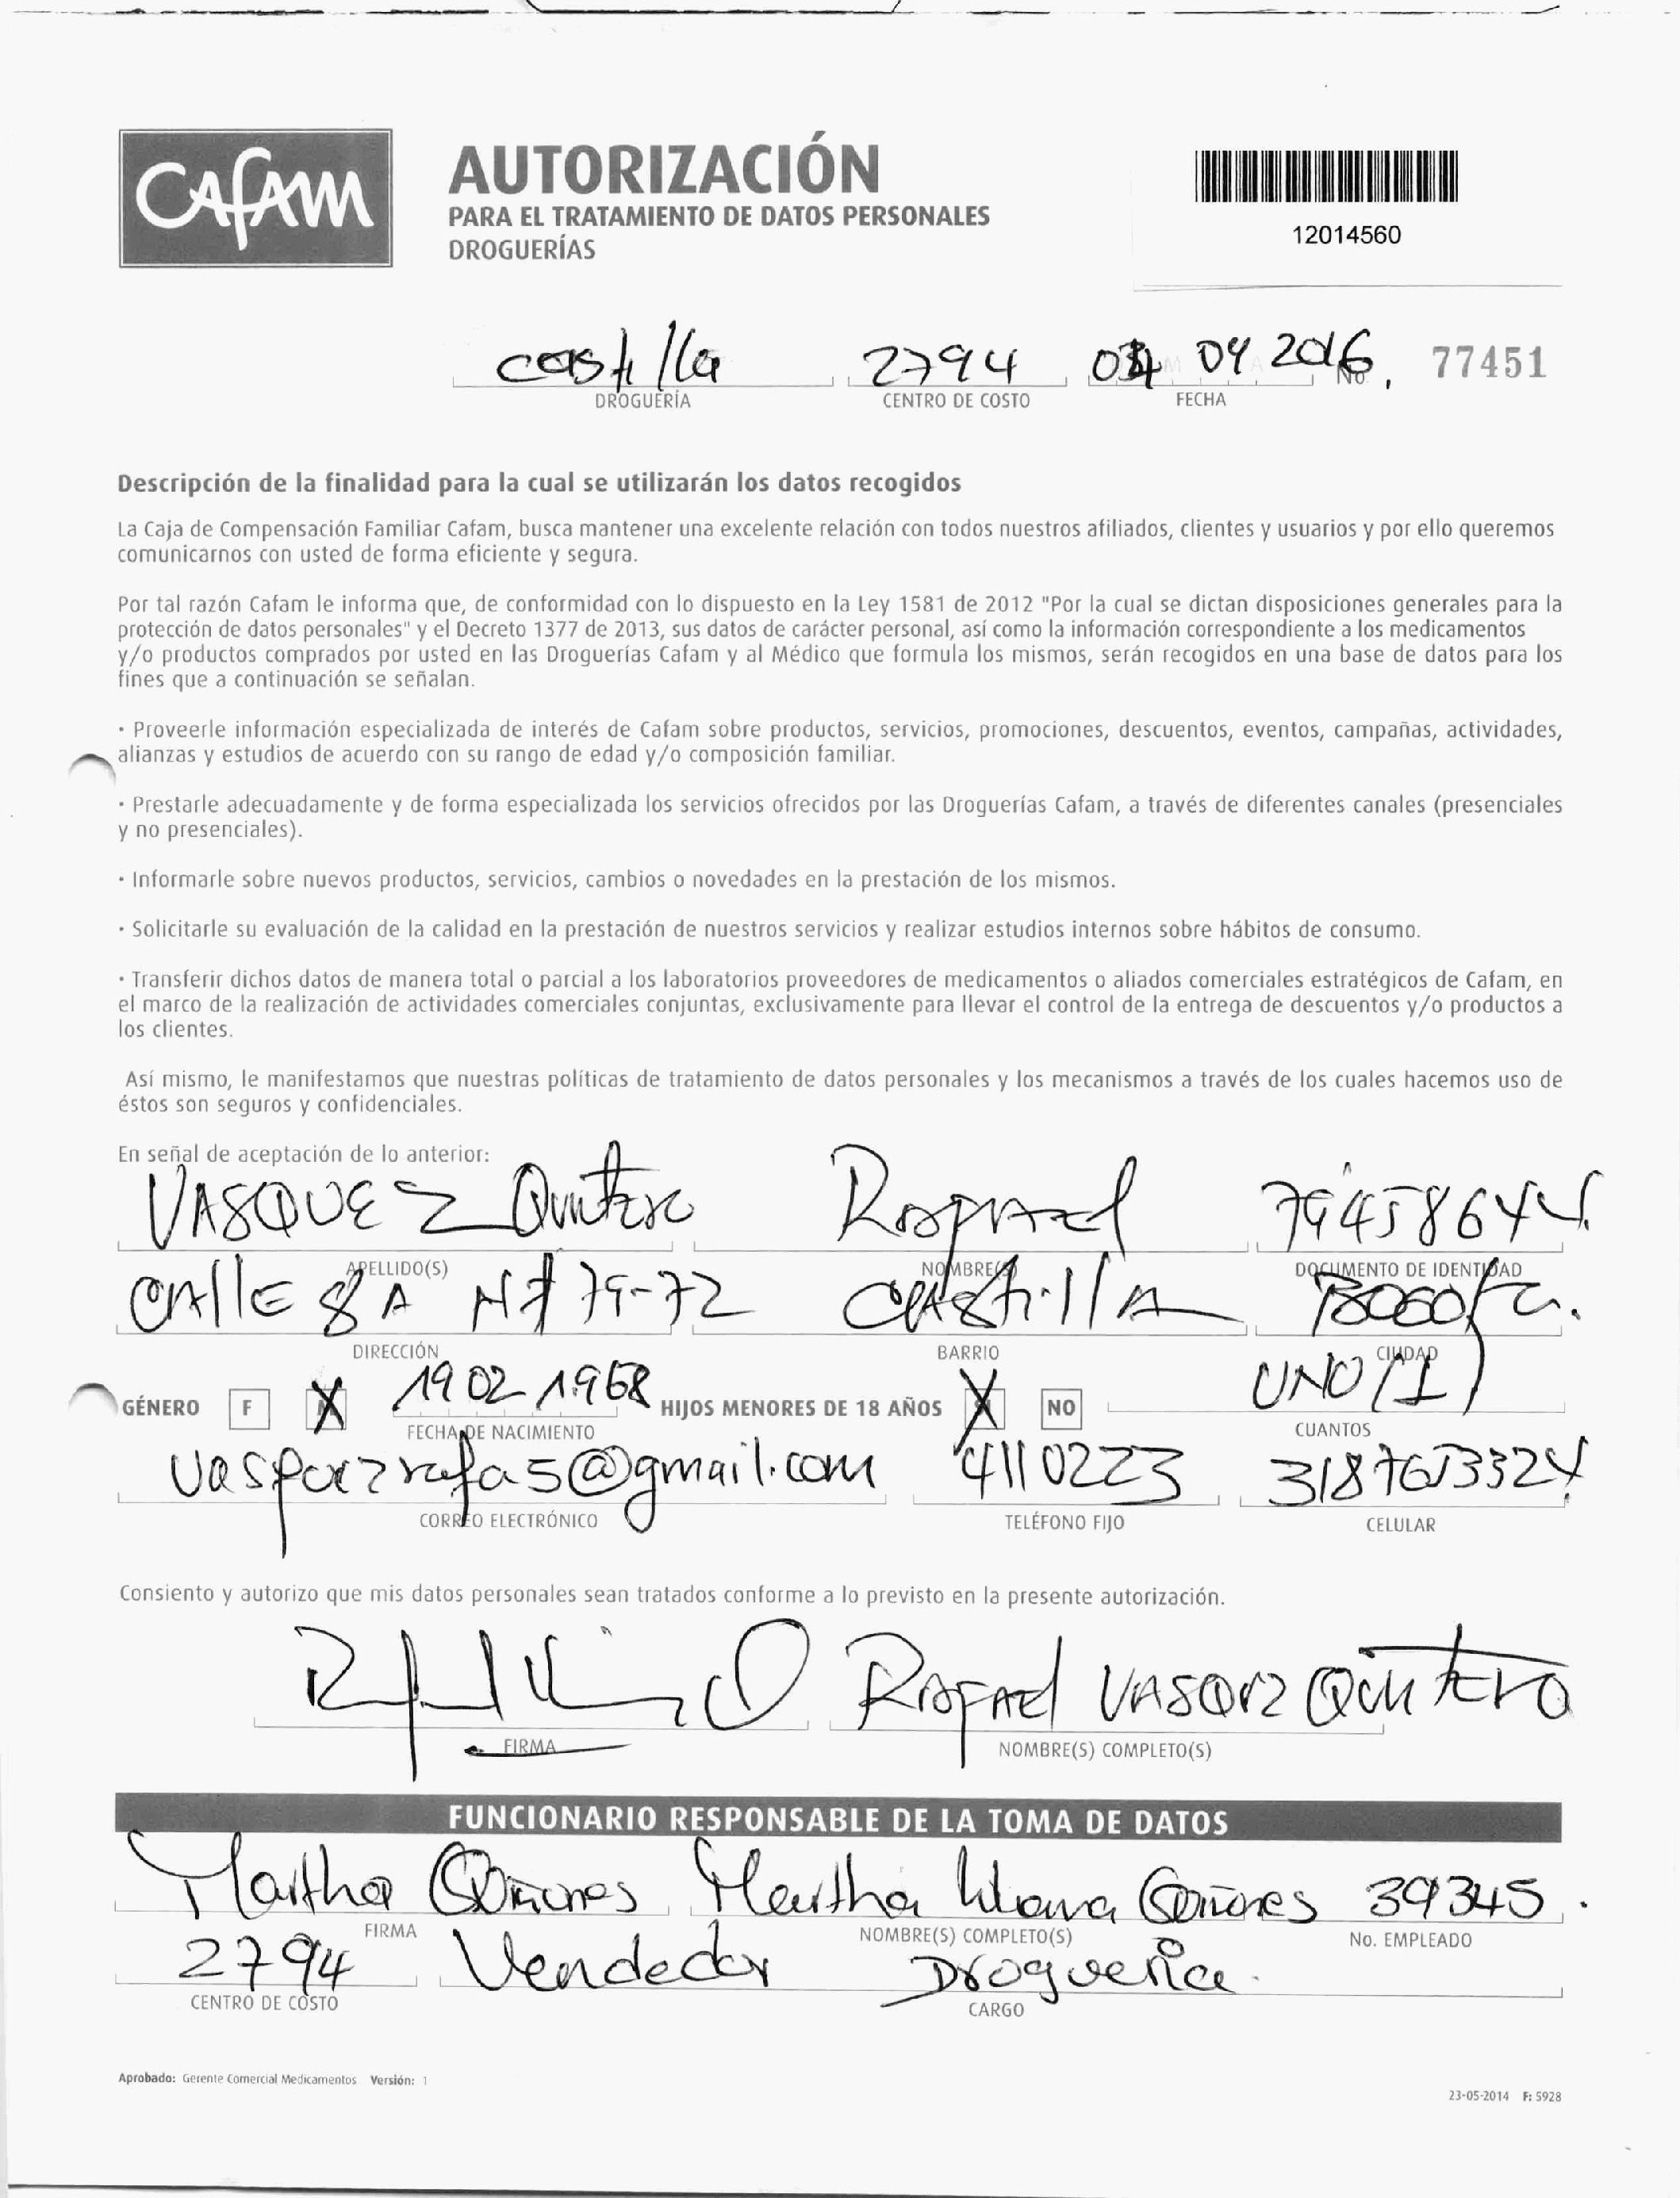 CAFAM
AUTORIZACIÓN
PARA EL TRATAMIENTO DE DATOS PERSONALES
DROGUERÍAS
12014560
castilla 2794 04 2016 No. 77451
DROGUERÍA CENTRO DE COSTO FECHA
Descripción de la finalidad para la cual se utilizarán los datos recogidos
La Caja de Compensación Familiar Cafam, busca mantener una excelente relación con todos nuestros afiliados, clientes y usuarios y por ello queremos
comunicarnos con usted de forma eficiente y segura.
Por tal razón Cafam le informa que, de conformidad con lo dispuesto en la Ley 1581 de 2012 "Por la cual se dictan disposiciones generales para la
protección de datos personales" y el Decreto 1377 de 2013, sus datos de carácter personal, así como la información correspondiente a los medicamentos
y/o productos comprados por usted en las Droguerías Cafam y al Médico que formula los mismos, serán recogidos en una base de datos para los
fines que a continuación se señalan.
· Proveerle información especializada de interés de Cafam sobre productos, servicios, promociones, descuentos, eventos, campañas, actividades,
alianzas y estudios de acuerdo con su rango de edad y/o composición familiar.
· Prestarle adecuadamente y de forma especializada los servicios ofrecidos por las Droguerías Cafam, a través de diferentes canales (presenciales
y no presenciales).
· Informarle sobre nuevos productos, servicios, cambios o novedades en la prestación de los mismos.
· Solicitarle su evaluación de la calidad en la prestación de nuestros servicios y realizar estudios internos sobre hábitos de consumo.
· Transferir dichos datos de manera total o parcial a los laboratorios proveedores de medicamentos o aliados comerciales estratégicos de Cafam, en
el marco de la realización de actividades comerciales conjuntas, exclusivamente para llevar el control de la entrega de descuentos y/o productos a
los clientes.
Así mismo, le manifestamos que nuestras políticas de tratamiento de datos personales y los mecanismos a través de los cuales hacemos uso de
éstos son seguros y confidenciales.
En señal de aceptación de lo anterior:
VASQUEZ Quintero Rafael 79458644
APELLIDO(S) NOMBRE(S) DOCUMENTO DE IDENTIDAD
CAllE 8A N# 79-72 CAStillA Bogota.
DIRECCIÓN BARRIO CIUDAD
GÉNERO F X 19 02 1968 HIJOS MENORES DE 18 AÑOS X NO UNO (1)
FECHA DE NACIMIENTO CUANTOS
vasquezrafa5@gmail.com 4110223 3187653324
CORREO ELECTRÓNICO TELÉFONO FIJO CELULAR
Consiento y autorizo que mis datos personales sean tratados conforme a lo previsto en la presente autorización.
Rafael VASQUEZ Quintero
FIRMA NOMBRE(S) COMPLETO(S)
FUNCIONARIO RESPONSABLE DE LA TOMA DE DATOS
Martha Martha liliana 39345.
FIRMA NOMBRE(S) COMPLETO(S) No. EMPLEADO
2794 Vendedor Drogueria.
CENTRO DE COSTO CARGO
Aprobado: Gerente Comercial Medicamentos Versión: 1
23-05-2014 F: 5928